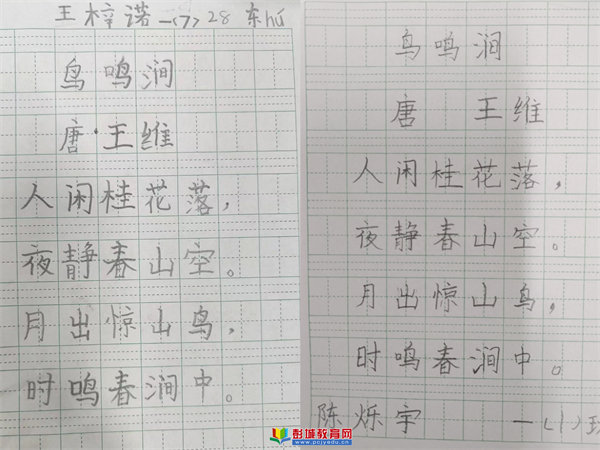 王梓诺一(7)28 东hú
鸟鸣涧
唐·王维
人闲桂花落，
夜静春山空。
月出惊山鸟，
时鸣春涧中。
鸟鸣涧
唐 王维
人闲桂花落，
夜静春山空。
月出惊山鸟，
时鸣春涧中。
陈烁宇 一(1)
彭城教育网
www.pcjyedu.cn